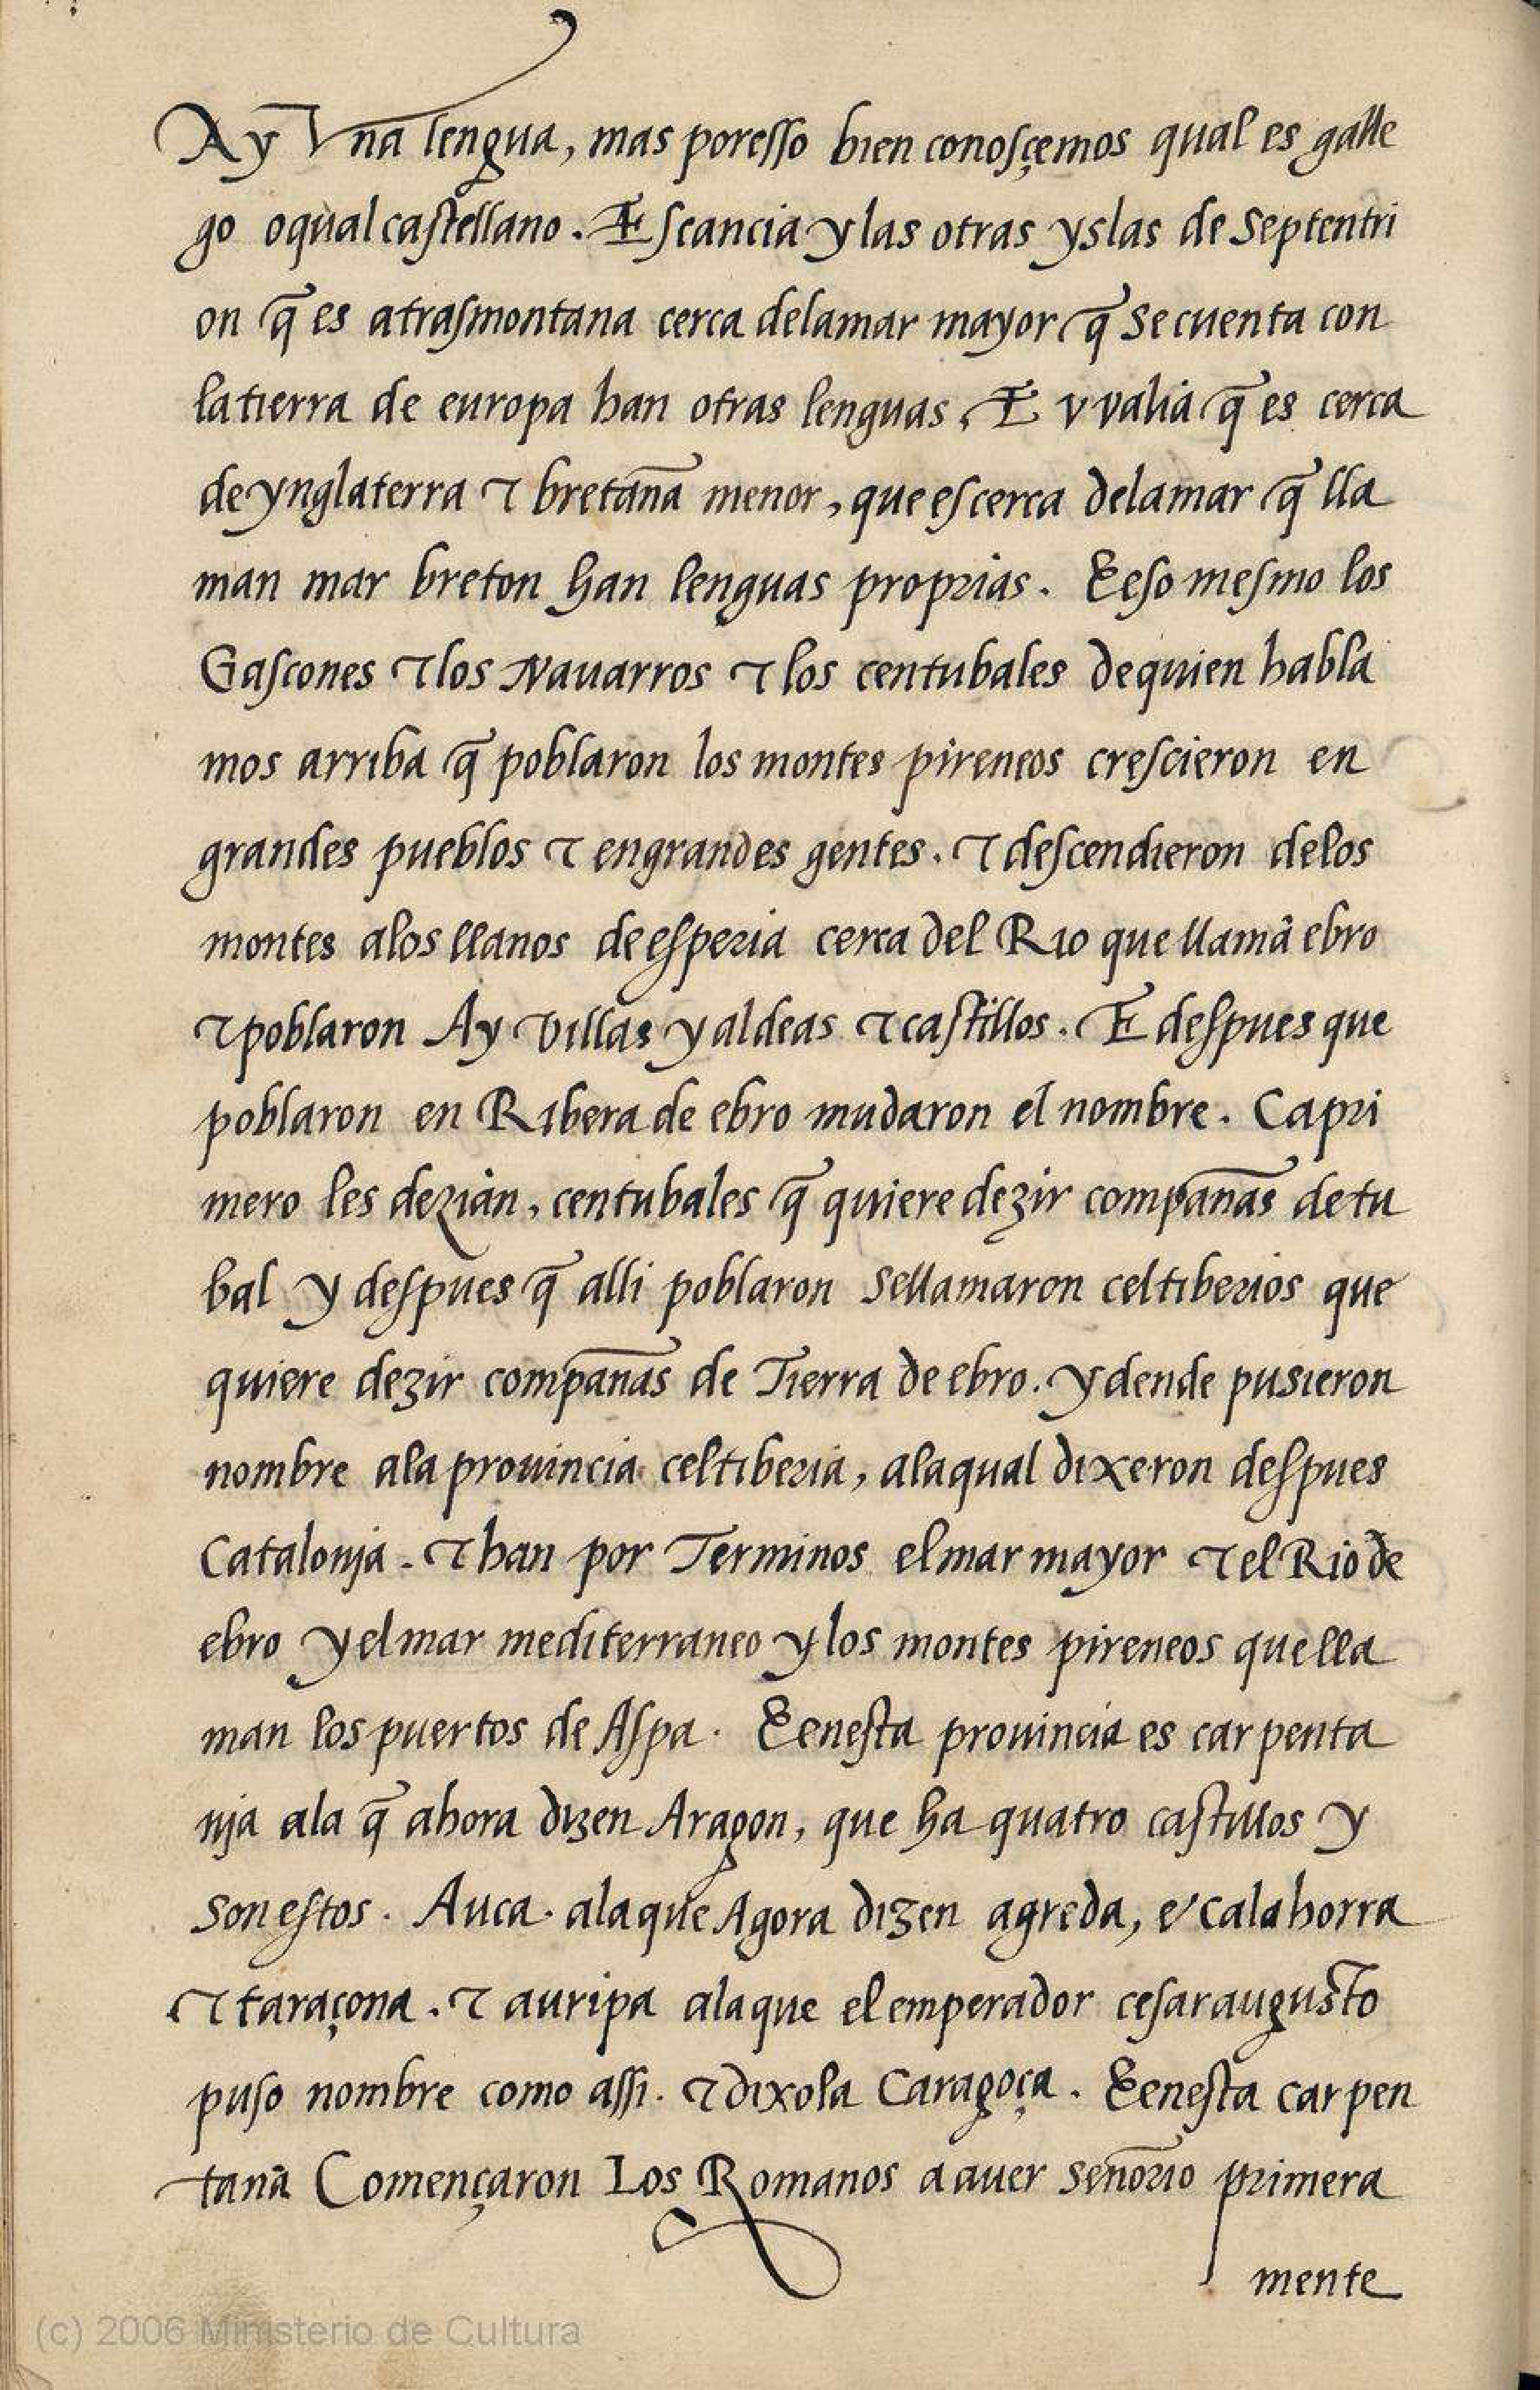 Ay Vna lengua, mas poresso bien conosçemos qual es galle
go oqual castellano. E scancia y las otras yslas de Septentri
on q̃ es atrasmontana cerca delamar mayor q̃ se cuenta con
la tierra de europa han otras lenguas. E vvalia q̃ es cerca
de ynglaterra ⁊ bretan̄a menor, que es cerca delamar q̃ lla
man mar breton han lenguas proprias. E eso mesmo los
Gascones ⁊ los Nauarros ⁊ los centubales dequien habla
mos arriba q̃ poblaron los montes pireneos crescieron en
grandes pueblos ⁊ engrandes gentes. ⁊ descendieron delos
montes alos llanos de esperia cerca del Rio que llamā ebro
⁊ poblaron Ay villas y aldeas ⁊ castillos. E despues que
poblaron en Ribera de ebro mudaron el nombre. Ca pri
mero les dezian, centubales q̃ quiere dezir compan̄as de tu
bal y despues q̃ alli poblaron sellamaron celtiberios que
quiere dezir compan̄as de Tierra de ebro. y dende pusieron
nombre ala prouincia celtiberia, alaqual dixeron despues
Catalonja. ⁊ han por Terminos elmar mayor ⁊ el Rio de
ebro y elmar mediterraneo y los montes pireneos que lla
man los puertos de Aspa. E enesta prouincia es carpenta
nja ala q̃ ahora dizen Aragon, que ha quatro castillos y
son estos. Auca. alaque Agora dizen agreda, e calahorra
⁊ taraçona. ⁊ auripa alaque el emperador cesaraugusto
puso nombre como assi. ⁊ dixola Caragoça. E enesta carpen
tanā Començaron Los Romanos a auer sen̄orio primera
mente
(c) 2006 Ministerio de Cultura